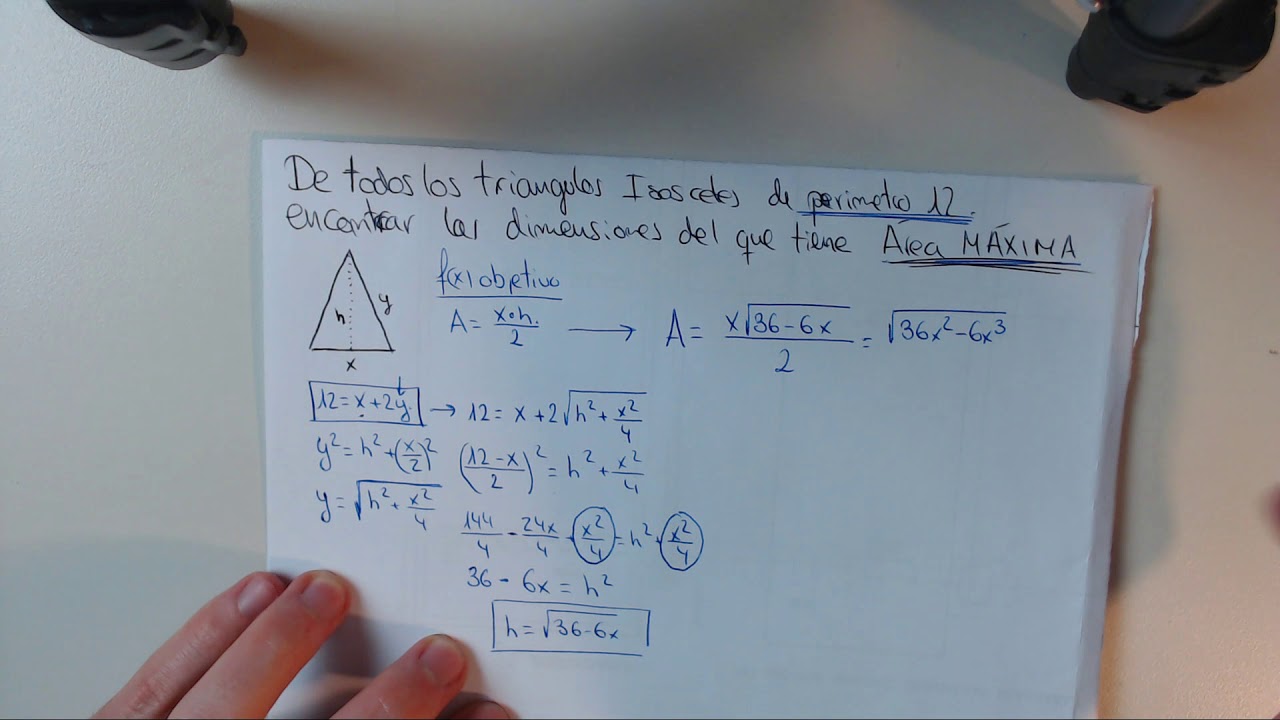 De todos los triangulos Isosceles de perimetro 12.
encontrar las dimensiones del que tiene Área MÁXIMA
f(x) objetivo
A = x•h/2 → A = x√(36-6x)/2 = √(36x²-6x³)
h
y
x
12 = x+2y → 12 = x+2√(h²+x²/4)
y² = h²+(x/2)² ((12-x)/2)² = h²+x²/4
y = √(h²+x²/4)
144/4 - 24x/4 + x²/4 = h² + x²/4
36 - 6x = h²
h = √(36-6x)